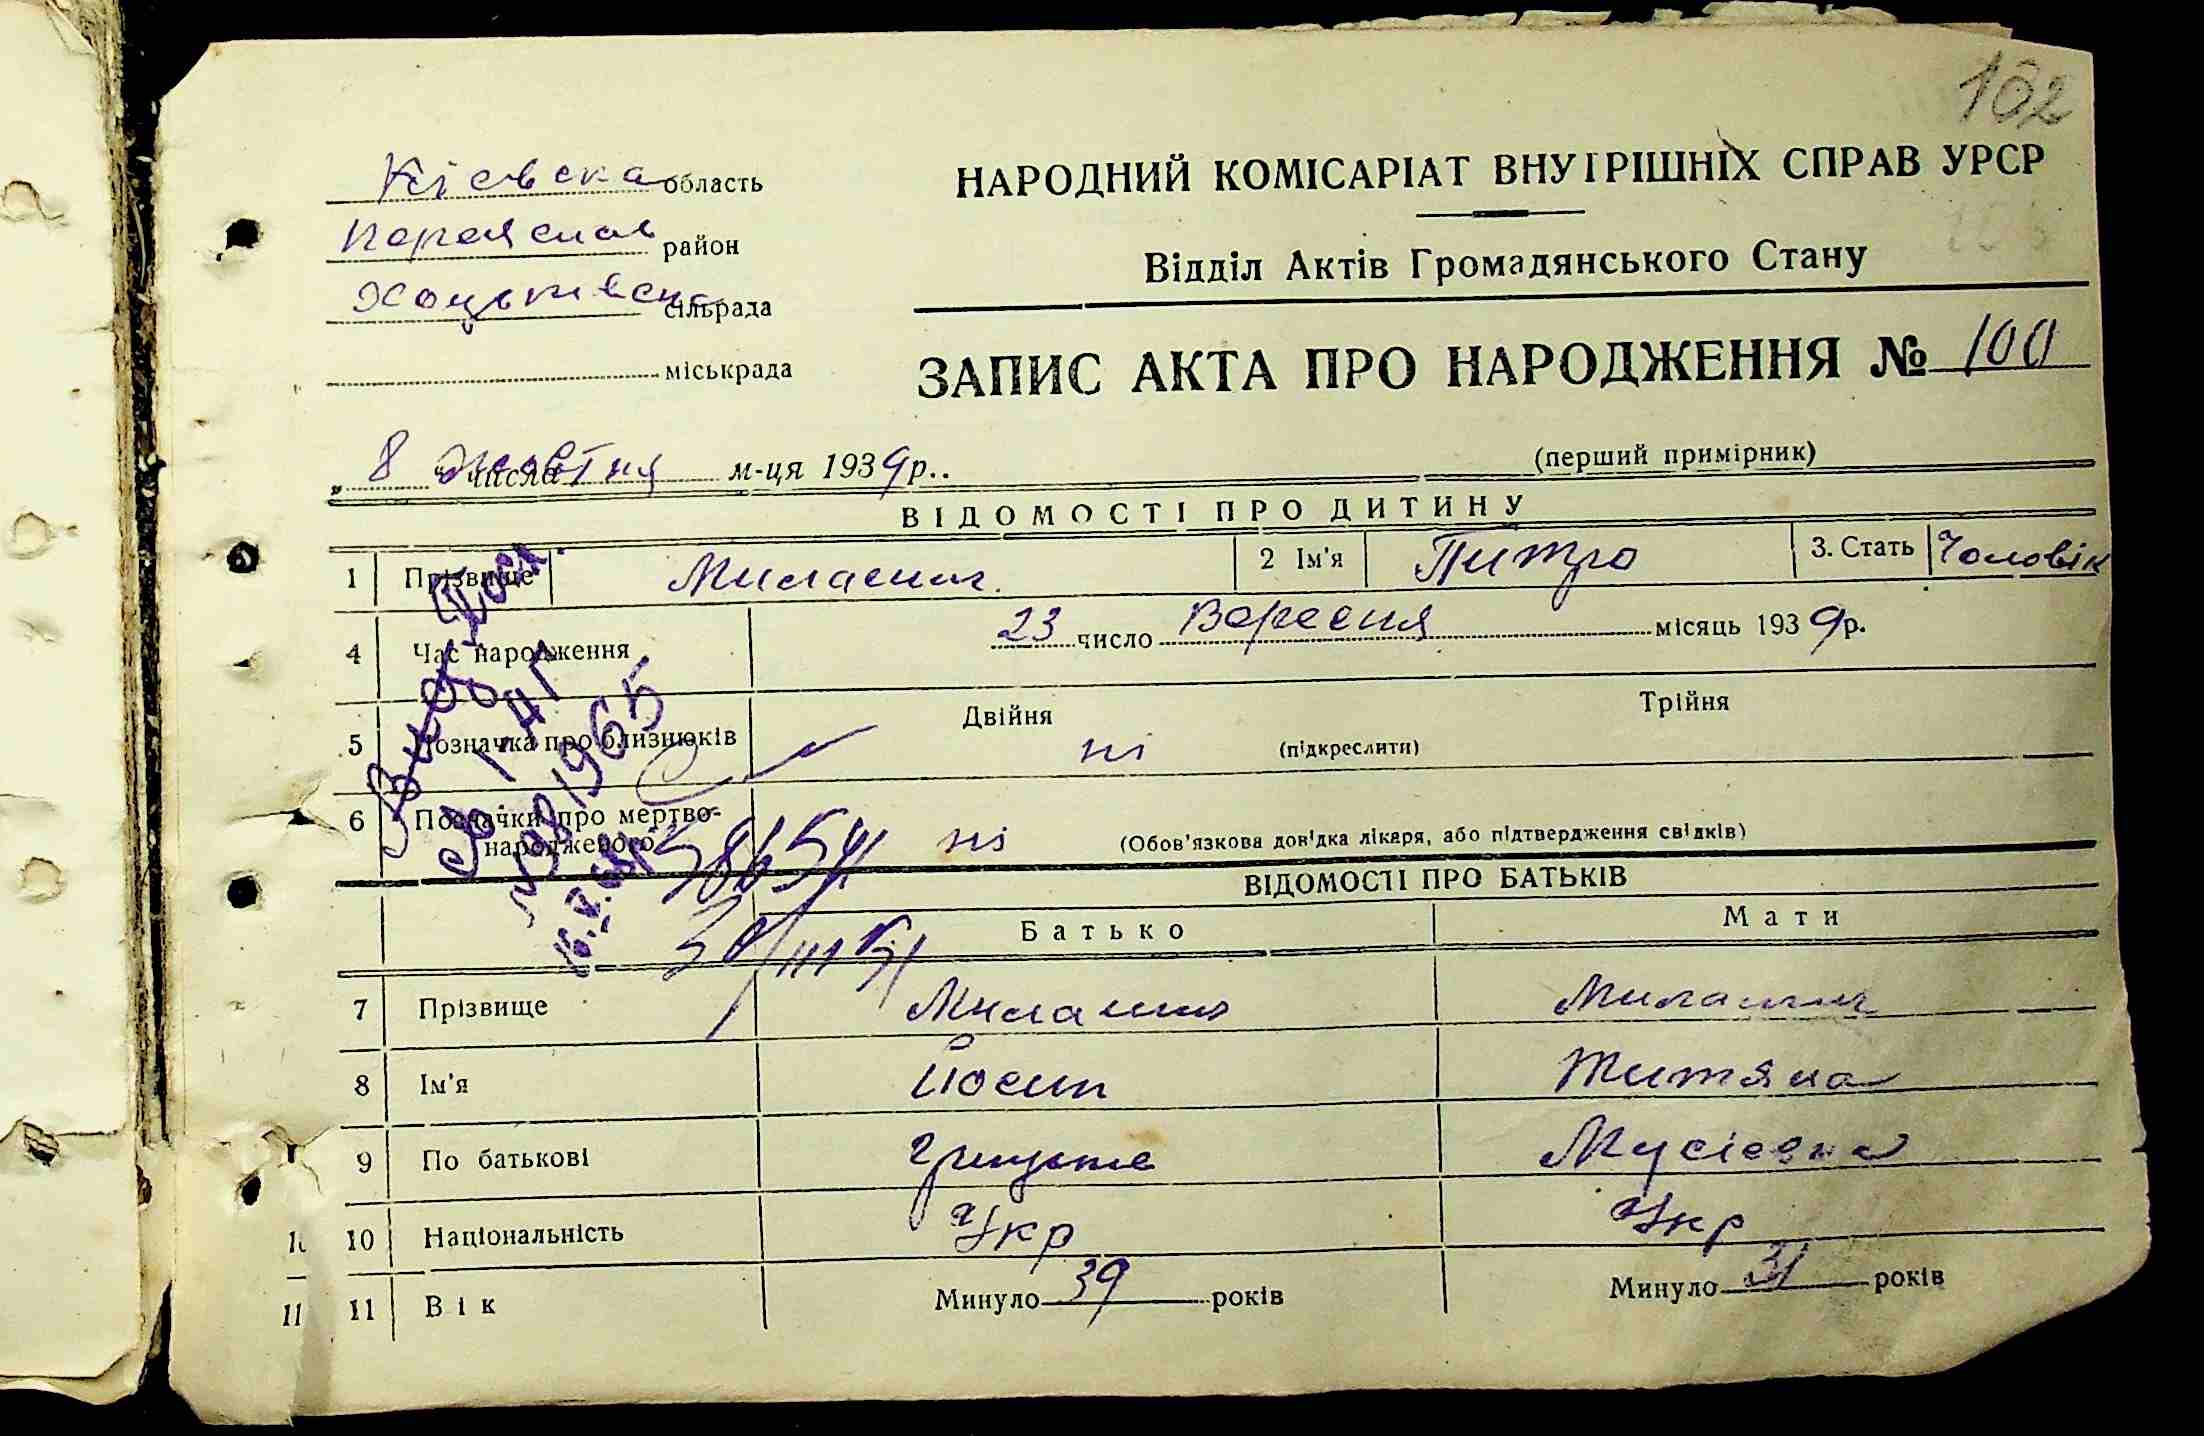 102
Кієвска область
Переяслав район
Хоцьківска сільрада
міськрада
НАРОДНИЙ КОМІСАРІАТ ВНУТРІШНІХ СПРАВ УРСР
Відділ Актів Громадянського Стану
ЗАПИС АКТА ПРО НАРОДЖЕННЯ № 100
„ 8 " числа Жовтня м-ця 1939р..
(перший примірник)
ВІДОМОСТІ ПРО ДИТИНУ
1 Прізвище 2 Ім'я Питро 3. Стать Чоловік
4 Час народження 23 число Вересня місяць 1939р.
5 Позначка про близнюків Двійня ні (підкреслити) Трійня
6 Позначки про мертвонародженого ні (Обов'язкова довідка лікаря, або підтвердження свідків)
1965
ВІДОМОСТІ ПРО БАТЬКІВ
Батько Мати
7 Прізвище
8 Ім'я Йосип Титяна
9 По батькові Мусіевна
10 Національність Укр Укр
11 Вік Минуло 39 років Минуло 31 років
11